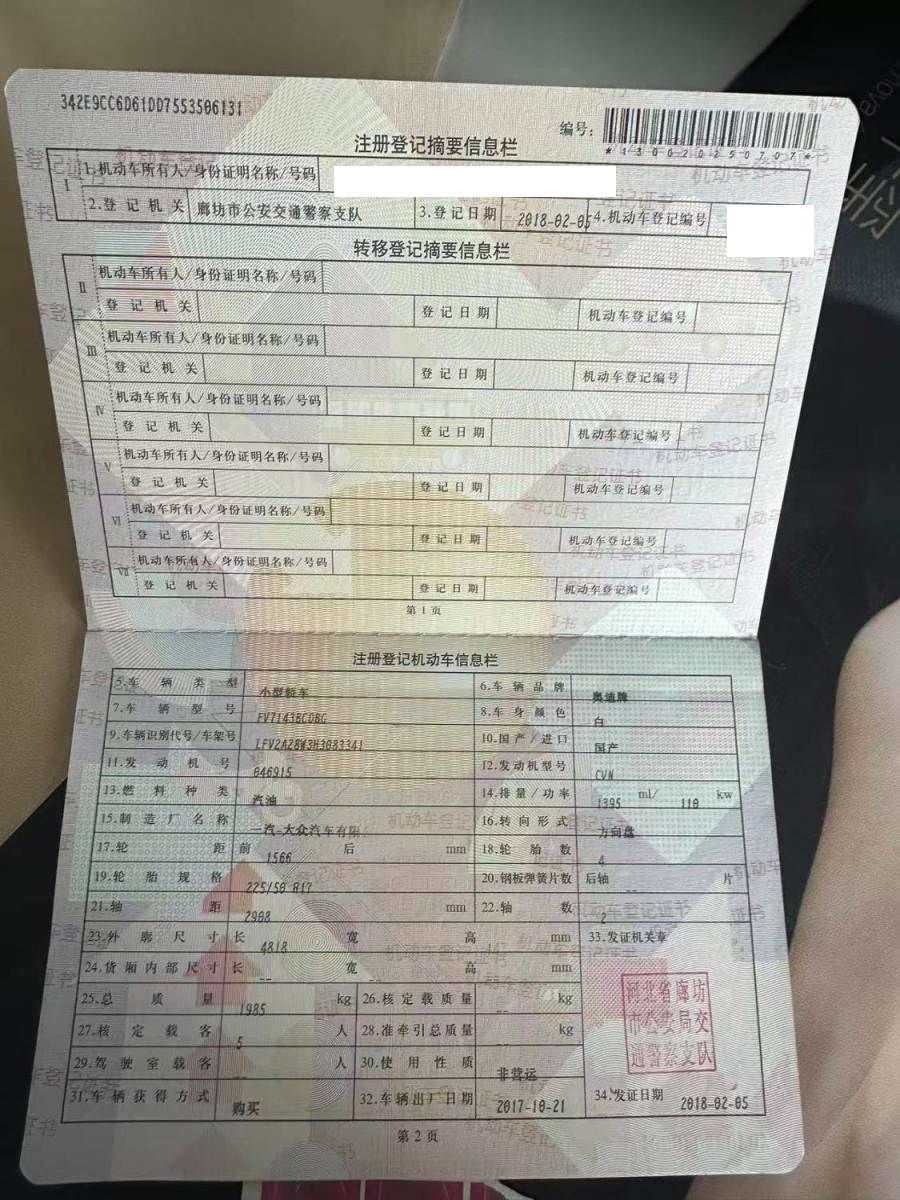 342E9CC6D61DD7553506131
编号:
*130020250707*
注册登记摘要信息栏
I 1.机动车所有人/身份证明名称/号码
2.登记机关 廊坊市公安交通警察支队 3.登记日期 2018-02-05 4.机动车登记编号
转移登记摘要信息栏
II 机动车所有人/身份证明名称/号码
登记机关 登记日期 机动车登记编号
III 机动车所有人/身份证明名称/号码
登记机关 登记日期 机动车登记编号
IV 机动车所有人/身份证明名称/号码
登记机关 登记日期 机动车登记编号
V 机动车所有人/身份证明名称/号码
登记机关 登记日期 机动车登记编号
VI 机动车所有人/身份证明名称/号码
登记机关 登记日期 机动车登记编号
VII 机动车所有人/身份证明名称/号码
登记机关 登记日期 机动车登记编号
第1页
注册登记机动车信息栏
5.车辆类型 小型轿车 6.车辆品牌 奥迪牌
7.车辆型号 FV7143BCDBG 8.车身颜色 白
9.车辆识别代号/车架号 LFV2A28W3H3083341 10.国产/进口 国产
11.发动机号 646915 12.发动机型号 CVN
13.燃料种类 汽油 14.排量/功率 1395 ml/ 110 kw
15.制造厂名称 一汽-大众汽车有限 16.转向形式 方向盘
17.轮距 前 1566 后 mm 18.轮胎数 4
19.轮胎规格 225/50 R17 20.钢板弹簧片数 后轴 -- 片
21.轴距 2908 mm 22.轴数 2
23.外廓尺寸 长 4818 宽 高 mm 33.发证机关章
24.货厢内部尺寸 长 -- 宽 高 mm
25.总质量 1985 kg 26.核定载质量 -- kg
27.核定载客 5 人 28.准牵引总质量 -- kg
29.驾驶室载客 -- 人 30.使用性质 非营运
河北省廊坊
市公安局交
通警察支队
31.车辆获得方式 购买 32.车辆出厂日期 2017-10-21 34.发证日期 2018-02-05
第2页